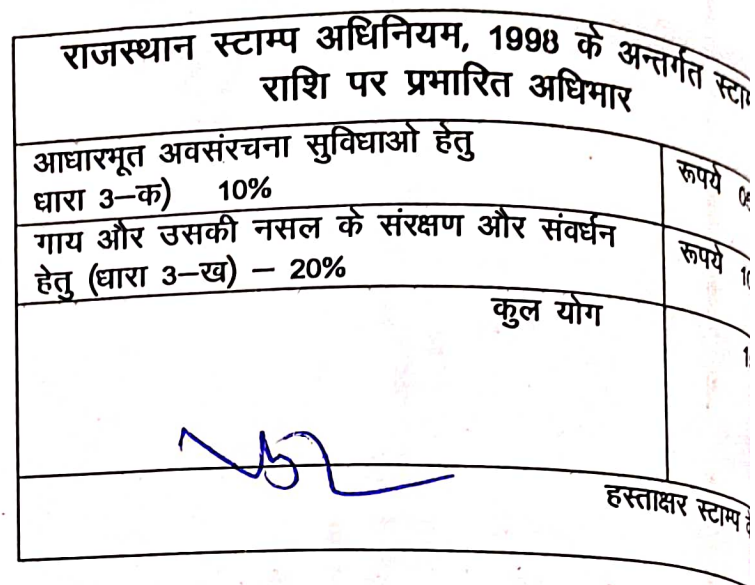 राजस्थान स्टाम्प अधिनियम, 1998 के अन्तर्गत
राशि पर प्रभारित अधिभार
आधारभूत अवसंरचना सुविधाओ हेतु
धारा 3–क) 10%
रूपये
गाय और उसकी नसल के संरक्षण और संवर्धन
हेतु (धारा 3–ख) – 20%
रूपये
कुल योग
हस्ताक्षर स्टाम्प